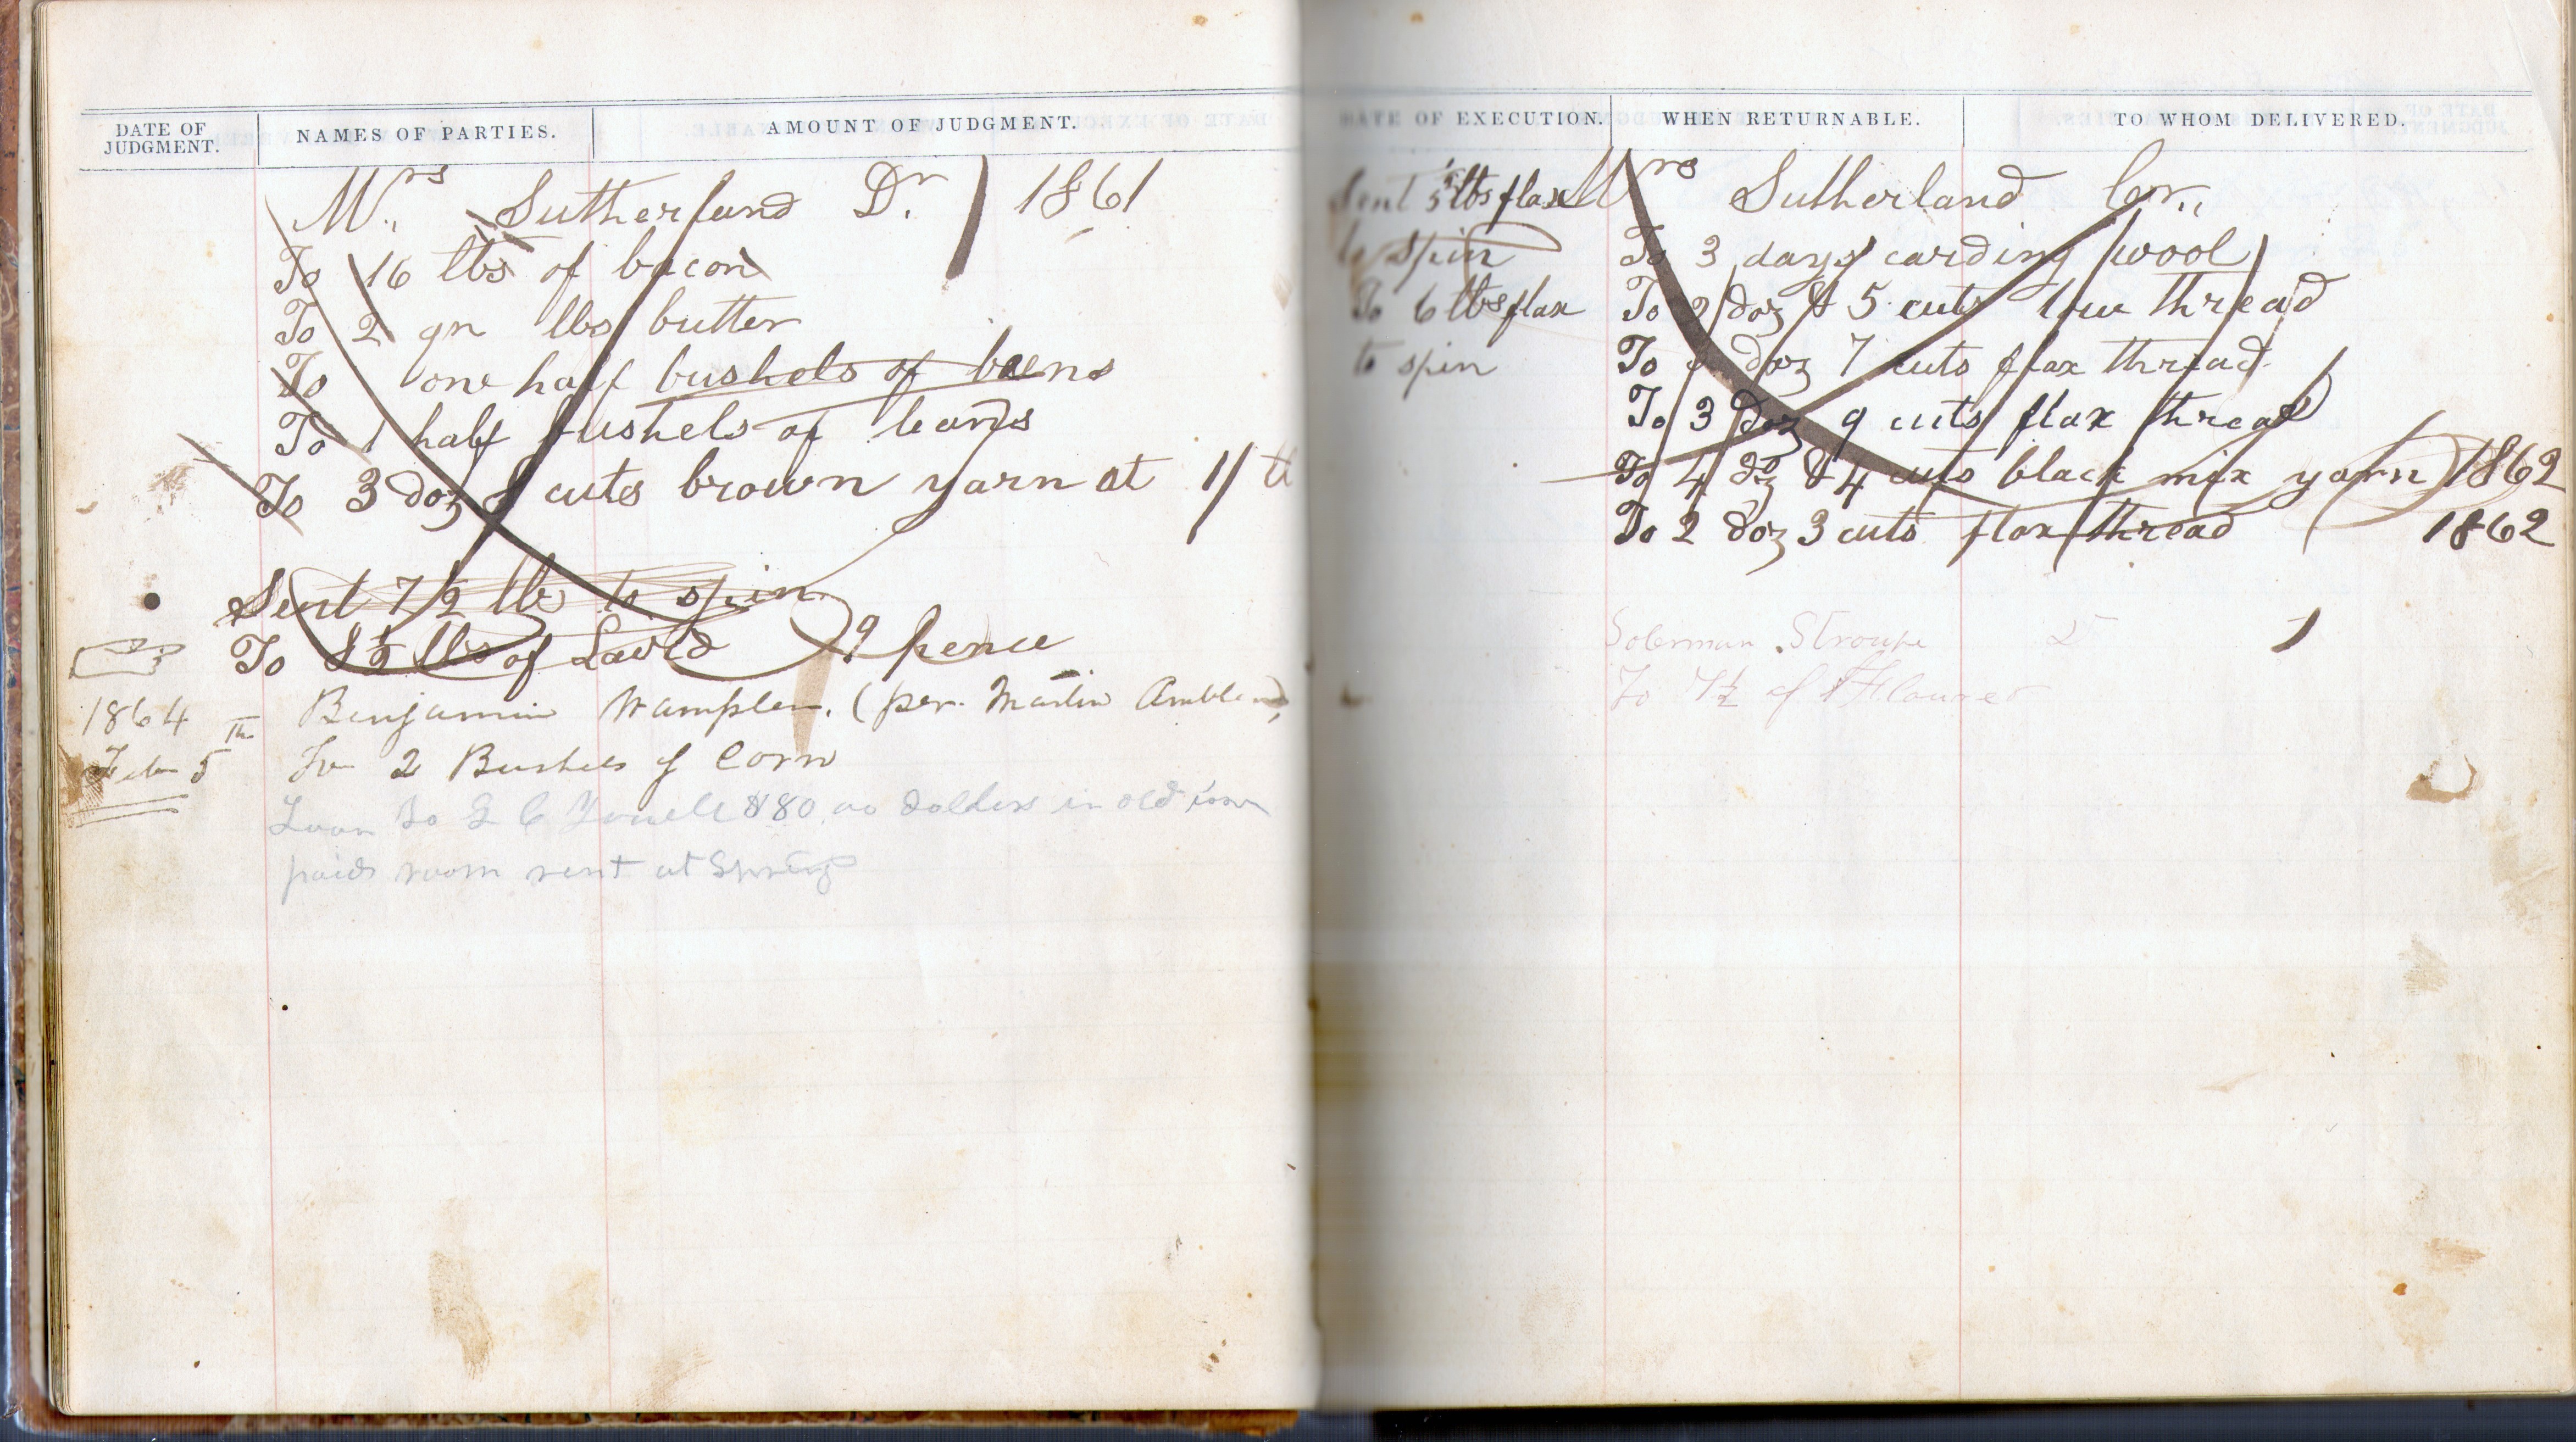 DATE OF JUDGMENT. NAMES OF PARTIES. AMOUNT OF JUDGMENT.
Mrs Sutherland Dr 1861
To 16 lbs of bacon
To 2 qr lbs butter
To one half bushels of beens
To 1 half bushels of beans
To 3 doz 8 cuts brown yarn at 1/
Sent 7 1/2 lbs to spin
To 8 1/2 lbs of Lard 9 pence
1864 Benjamin Wampler. (per. Martin
Feb 5th For 2 Bushels of Corn
Loan To $80.00 dollers in old
paid room rent at Spring
DATE OF EXECUTION. WHEN RETURNABLE. TO WHOM DELIVERED.
Sent 5 lbs flax
to spin
To 6 lbs flax
to spin
Mrs Sutherland Cr.,
To 3 days carding wool
To 2 doz & 5 cuts tow thread
To doz 7 cuts flax thread
To 3 doz 9 cuts flax thread
To 4 dz & 4 cuts black mix yarn 1862
To 2 doz 3 cuts flax thread 1862
Stroupe
To 7 1/2 of